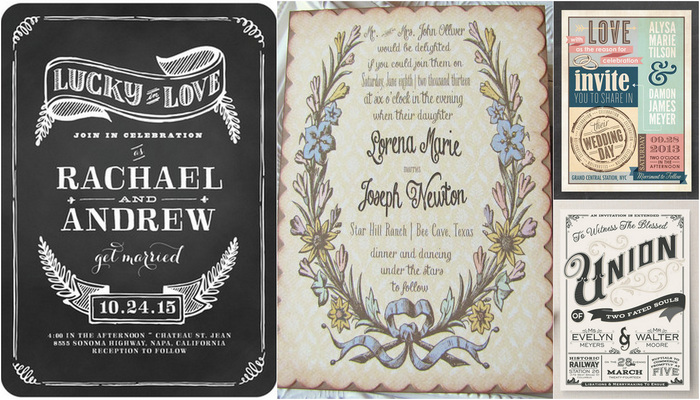 LUCKY IN LOVE
JOIN IN CELEBRATION
as
RACHAEL
AND
ANDREW
get married
10.24.15
4:00 IN THE AFTERNOON ~ CHATEAU ST. JEAN
8555 SONOMA HIGHWAY, NAPA, CALIFORNIA
RECEPTION TO FOLLOW
Mr. and Mrs. John Olliver
would be delighted
if you could join them on
Saturday, June eighth | two thousand thirteen
at six o'clock in the evening
when their daughter
Lorena Marie
marries
Joseph Newton
Star Hill Ranch | Bee Cave, Texas
dinner and dancing
under the stars
to follow
with LOVE
as the reason for
celebration
invite
YOU TO SHARE IN
their
WEDDING
DAY
GRAND CENTRAL STATION, NYC
ALYSA
MARIE
TILSON
&
DAMON
JAMES
MEYER
SATURDAY
09.28
2013
TWO O'CLOCK
IN THE
AFTERNOON
Merriment to Follow
AN INVITATION IS EXTENDED
To Witness The Blessed
UNION
OF TWO FATED SOULS
Ms.
EVELYN
MEYERS
&
Mr.
WALTER
MOORE
HISTORIC
RAILWAY
STATION 26
ON THE 28th OF
MARCH
TWENTY-FOURTEEN
FIVE
LIBATIONS & MERRYMAKING TO ENSUE